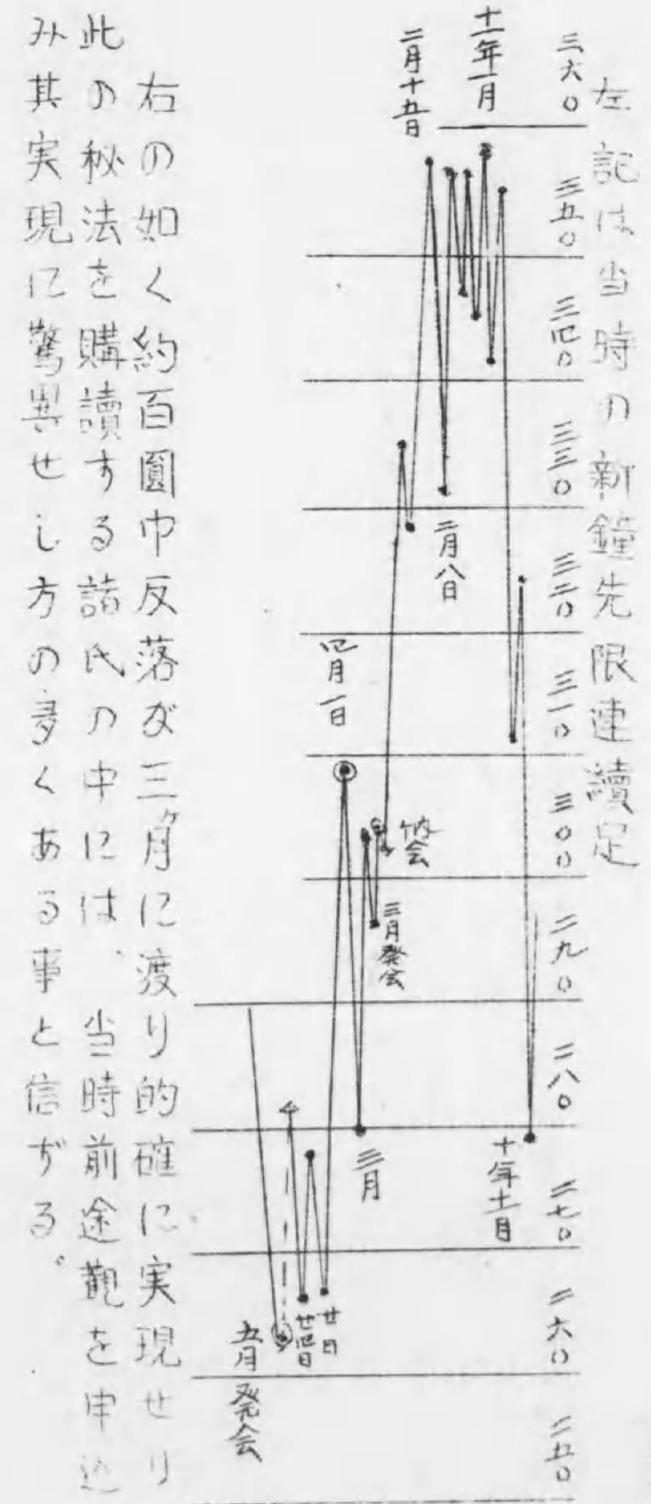 左記は当時の新鐘先限連續足
三六〇
三五〇
三四〇
三三〇
三二〇
三一〇
三〇〇
二九〇
二八〇
二七〇
二六〇
二五〇
十年十一月
十一年一月
二月十五日
二月八日
納会
三月発会
三月
四月一日
廿日
廿四日
五月発会
右の如く約百圓巾反落が三ヶ月に渡り的確に実現せり
此の秘法を購讀する諸氏の中には、当時前途観を申込
み其実現に驚異せし方の多くある事と信ずる。